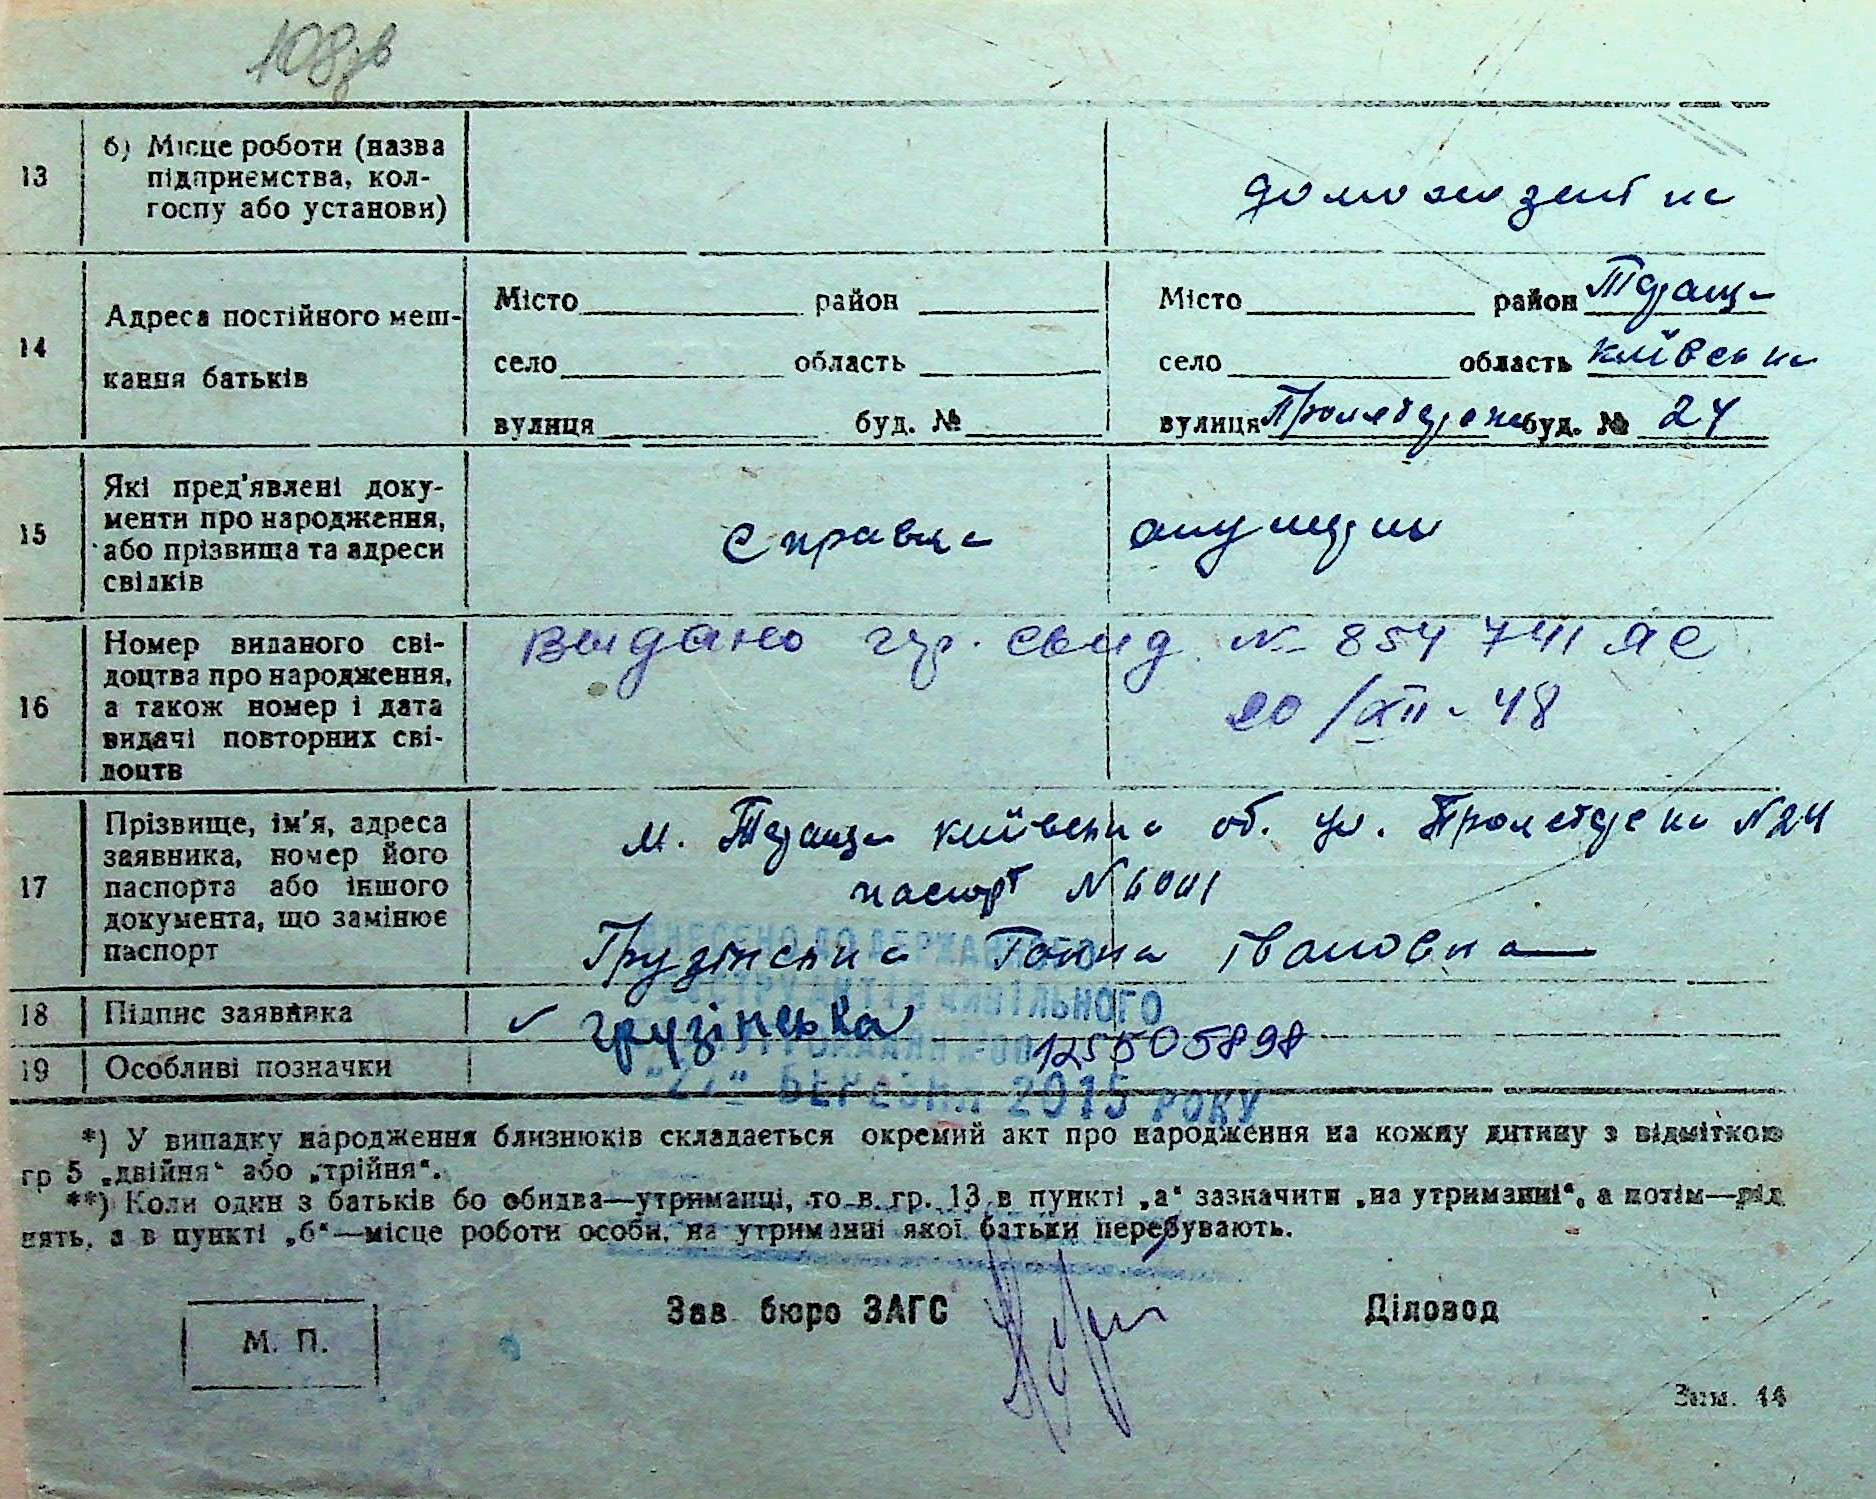 108 зв
13
б) Місце роботи (назва
підприємства, кол-
госпу або установи)
14
Адреса постійного меш-
кання батьків
Місто район
село область
вулиця буд. №
Місто район Тараща
село область київська
вулиця буд. № 24
15
Які пред'явлені доку-
менти про народження,
або прізвища та адреси
свідків
Справка
16
Номер виданого сві-
доцтва про народження,
а також номер і дата
видачі повторних сві-
доцтв
Выдано гр. свид № 854741 ЯС
20/XII-48
17
Прізвище, ім'я, адреса
заявника, номер його
паспорта або іншого
документа, що замінює
паспорт
м. Тараща київська об. ул. N24
паспорт N
Грузінська Ганна Івановна
18
Підпис заявника
✓ грузінська
19
Особливі позначки
125505898
ВНЕСЕНО ДО ДЕРЖАВНОГО
РЕЄСТРУ АКТІВ ЦИВІЛЬНОГО
"27" БЕРЕЗНЯ 2015 РОКУ
*) У випадку народження близнюків складається окремий акт про народження на кожну дитину з відміткою
гр 5 „двійня“ або „трійня“.
**) Коли один з батьків бо обидва—утриманці, то в гр. 13 в пункті „а“ зазначити „на утриманні“, а потім—рід
нять, а в пункті „б“—місце роботи особи, на утриманні якої батьки перебувають.
М. П.
Зав. бюро ЗАГС
Діловод
Зам. 44